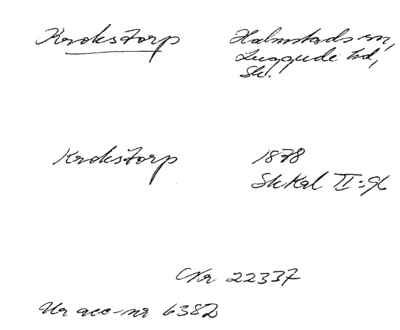 Krokstorp Halmstads sn,
Luggude hd,
Sk.
Krokstorp 1878
SkKal II:96
Nr 22337
Ur acc-nr 6382